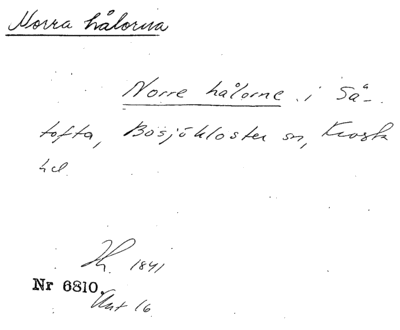 Norra hålorna
Norre hålorne i Så-
tofta, Bosjökloster sn, Frosta
hd.
1841
Nr 6810.
Akt 16